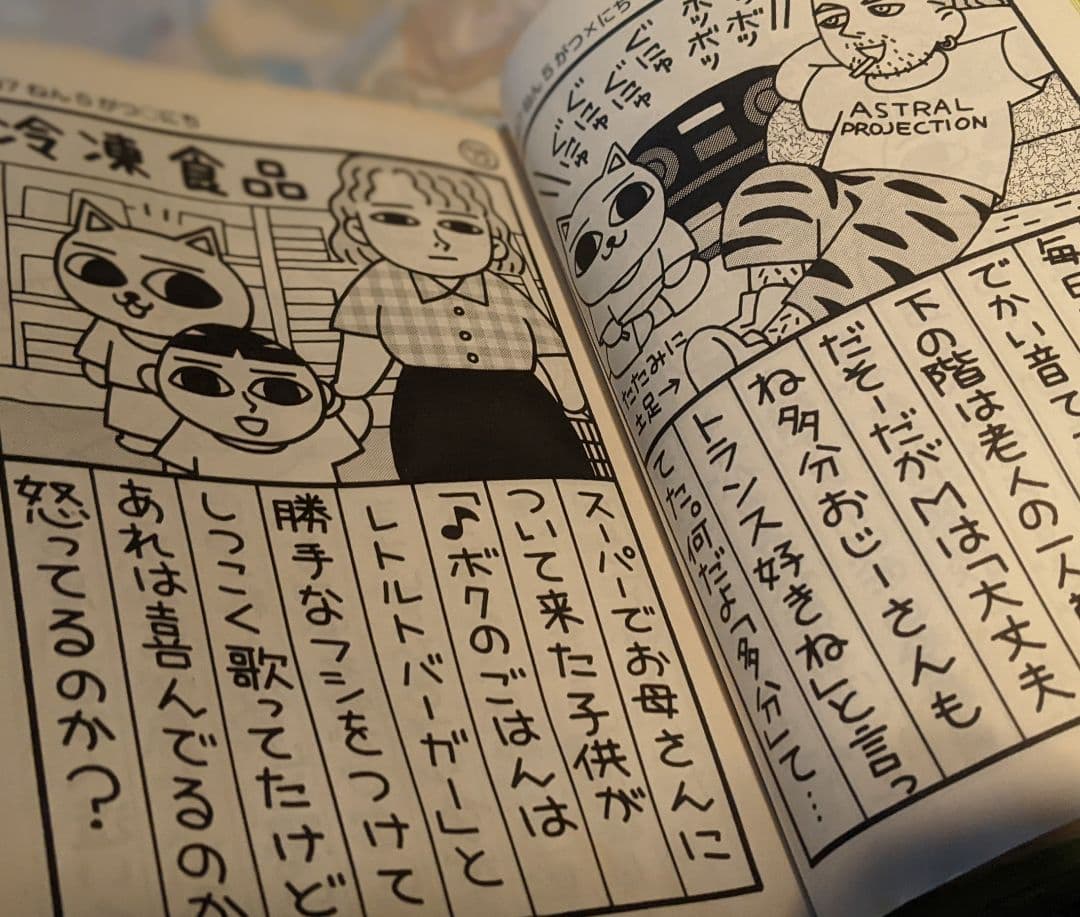 ねん5がつ×にち
ボツボツ
ぐにゃぐにゃ
ぐにゃぐにゃ
ASTRAL
PROJECTION
たたみに
土足→
毎日
でかい音で
下の階は老人の一人
だそーだがMは「大丈夫
ね多分おじーさんも
トランス好きね」と言っ
てた。何だよ「多分」て…
7ねん5がつ○にち
冷凍食品
スーパーでお母さんに
ついて来た子供が
「♪ボクのごはんは
レトルトバーガー」と
勝手なフシをつけて
しつこく歌ってたけど
あれは喜んでるのか
怒ってるのか？